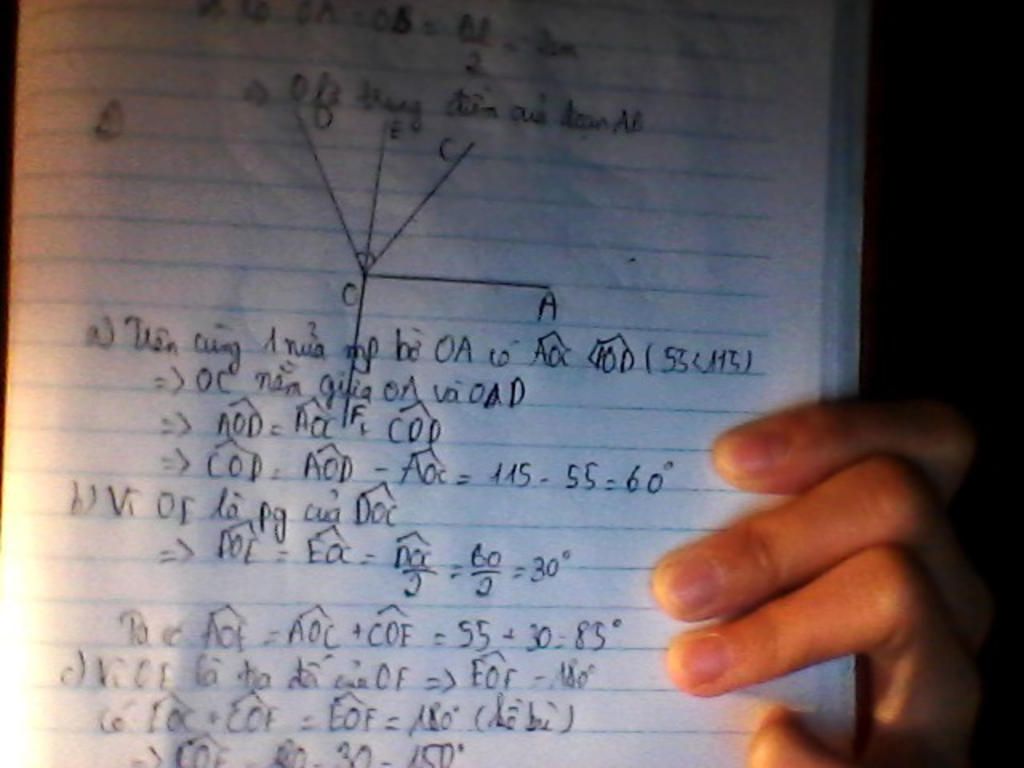 Có OA = OB = AB/2 = 2cm
=> O là trung điểm của đoạn AB
2)
D E C
O A
a) Trên cùng 1 nửa mp bờ OA có AOC < AOD (55 < 115)
=> OC nằm giữa OA và OD
F
=> AOD = AOC + COD
=> COD = AOD - AOC = 115 - 55 = 60°
b) Vì OE là pg của DOC
=> DOE = EOC = DOC/2 = 60/2 = 30°
Ta có AOE = AOC + COE = 55 + 30 = 85°
c) Vì OE là tia đối của OF => EOF = 180°
Có EOC + COF = EOF = 180° (kề bù)
=> COF = 180 - 30 = 150°